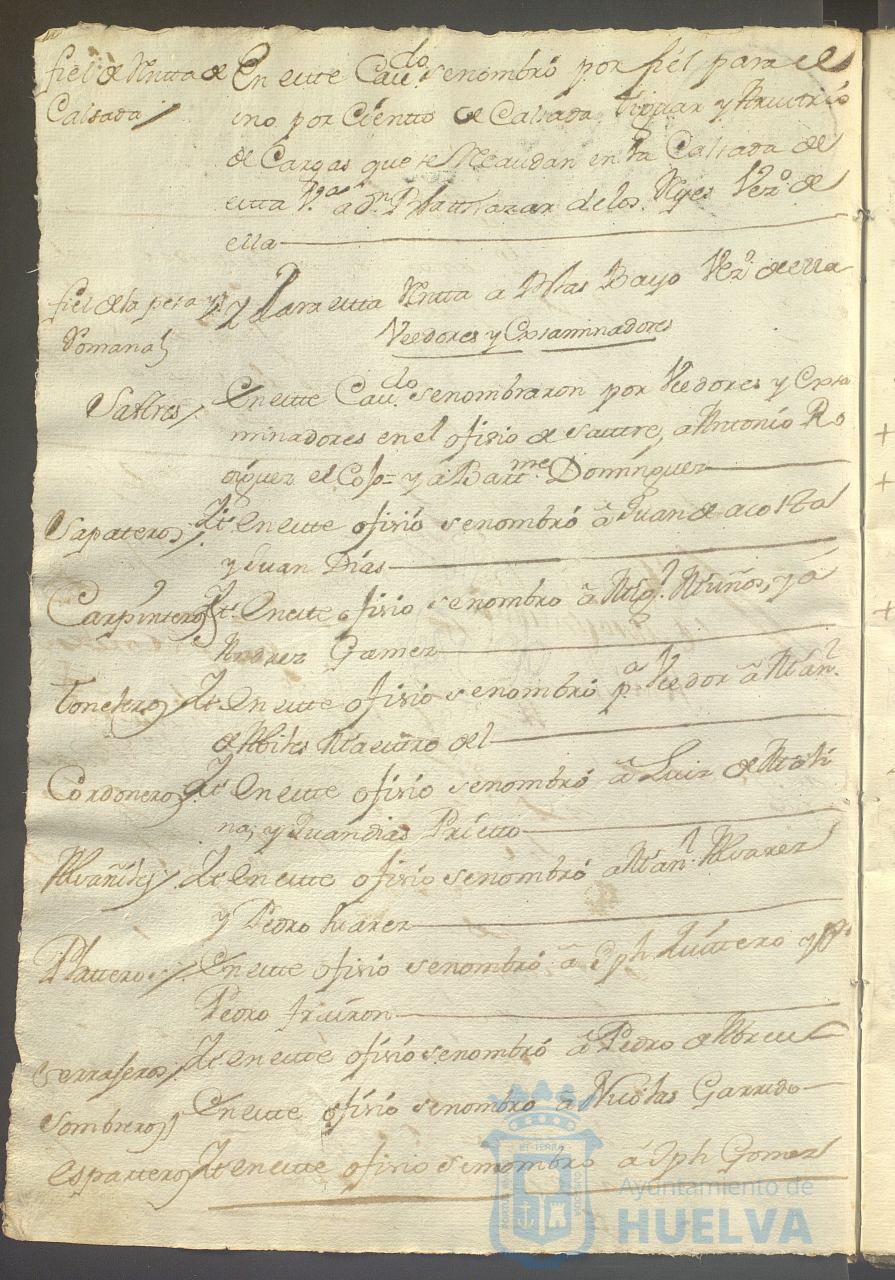 fiel de Rentta de
Calsada
En este Cau.do se nombró por fiel para el
uno por Ciento de Calsada
de Cargas que se Recaudan en la Calsada de
esta V.a a Dn. Balthazar de los Reyes Vez.o de
ella
fiel de la pesa y
Romana
y Para esta Rentta a Blas Bayo Vez.o de ella
Veedores y Exsaminadores
Sastres
En este Cau.do se nombraron por Veedores y Exsa
minadores en el ofisio de sastre, a Antonio Ro
driguez el Coxo= y á Bart.me Dominguez
Sapateros
Yt. En este ofisio se nombró â Juan de acosta
y Juan Días
Carpinteros
Yt. En este ofisio se nombró â Mig.l Muños, y â
Andrez Gamez
Toneleros
Yt. En este ofisio se nombró p.a Veedor â Man.l
de Abiles Maestro del
Cordoneros
Yt. En este ofisio se nombró â Luiz de Moli
na; y Juan dias Prietto
Alvañiles
Yt. En este ofisio se nombró a Man.l Alvarez
y Pedro Suarez
Platteros
En este ofisio se nombró â Jph Quintero y
Pedro
Serrajeros
Yt. En este ofisio se nombró â Pedro de Abreu
Sombreros
En este ofisio se nombró â Nicolas Garrido
Esparteros
Yt. en este ofisio se nombro â Jph Gomez
Ayuntamiento de
HUELVA